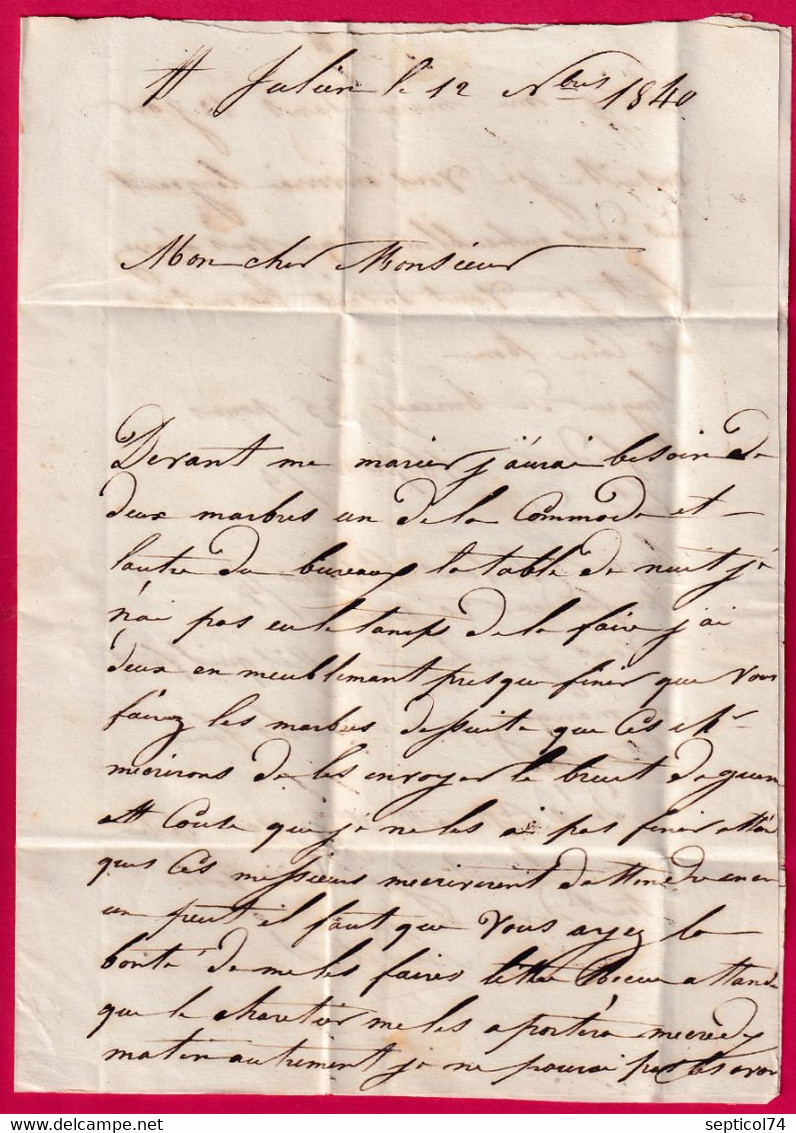 St Julien le 12 Nbris 1840
Mon cher Monsieur
Devant me marier j'aurai besoin de
deux marbres un de la Commode et
lautre du bureaux la table de nuit je
n'ai pas eu le tamps de la faire j'ai
deux en meublemant presque finir que vous
fairez les marbres dessuite que ces
mecrirons de les envoyer le bruit de guerre
Cause que je ne les ai pas finir
que ces messieurs mecrivirent dattendre encor
un peut il faut que vous ayez la
bonté de me les faires lettre Recue attandu
que le charetier me les aportera mecredy
matin autrement je ne pourai pas les avoir
delcampe.net
septicol74